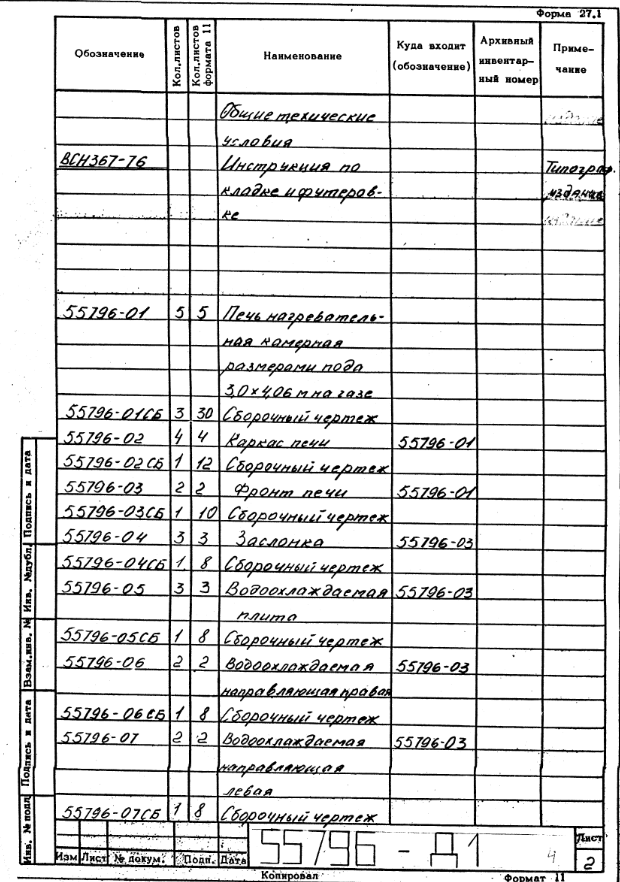 Форма 27.1
Обозначение Кол.листов Кол.листов формата 11 Наименование Куда входит (обозначение) Архивный инвентар- ный номер Приме- чание
Общие технические
условия
ВСН367-76 Инструкция по Типограф.
кладке и футеров- издание
ке
55796-01 5 5 Печь нагреватель-
ная камерная
размерами пода
3,0×4,06 м на газе
55796-01СБ 3 30 Сборочный чертеж
55796-02 4 4 Каркас печи 55796-01
55796-02СБ 1 12 Сборочный чертеж
55796-03 2 2 Фронт печи 55796-01
55796-03СБ 1 10 Сборочный чертеж
55796-04 3 3 Заслонка 55796-03
55796-04СБ 1 8 Сборочный чертеж
55796-05 3 3 Водоохлаждаемая 55796-03
плита
55796-05СБ 1 8 Сборочный чертеж
55796-06 2 2 Водоохлаждаемая 55796-03
направляющая правая
55796-06СБ 1 8 Сборочный чертеж
55796-07 2 2 Водоохлаждаемая 55796-03
направляющая
левая
55796-07СБ 1 8 Сборочный чертеж
Инв. № подл Подпись и дата Взам.инв. № Инв. №дубл. Подпись и дата
Изм Лист № докум. Подп. Дата 55796 - Д1 4 Лист 2
Копировал Формат 11